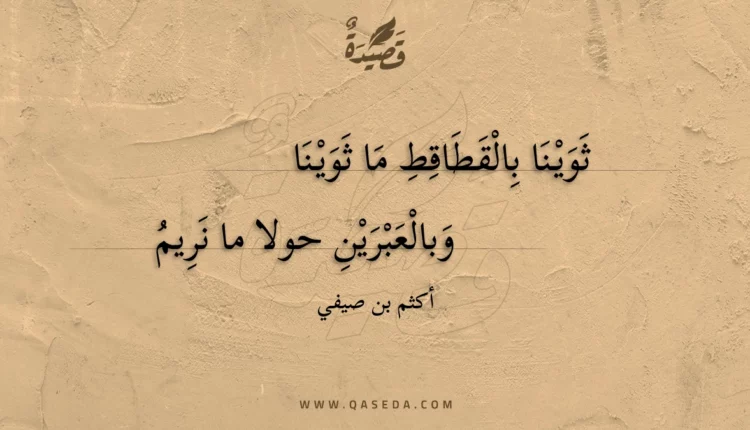 قَصِيدَةٌ
ثَوَيْنَا بِالْقَطَاقِطِ مَا ثَوَيْنَا
وَبالْعَبْرَيْنِ حولا ما نَرِيمُ
أكثم بن صيفي
WWW.QASEDA.COM